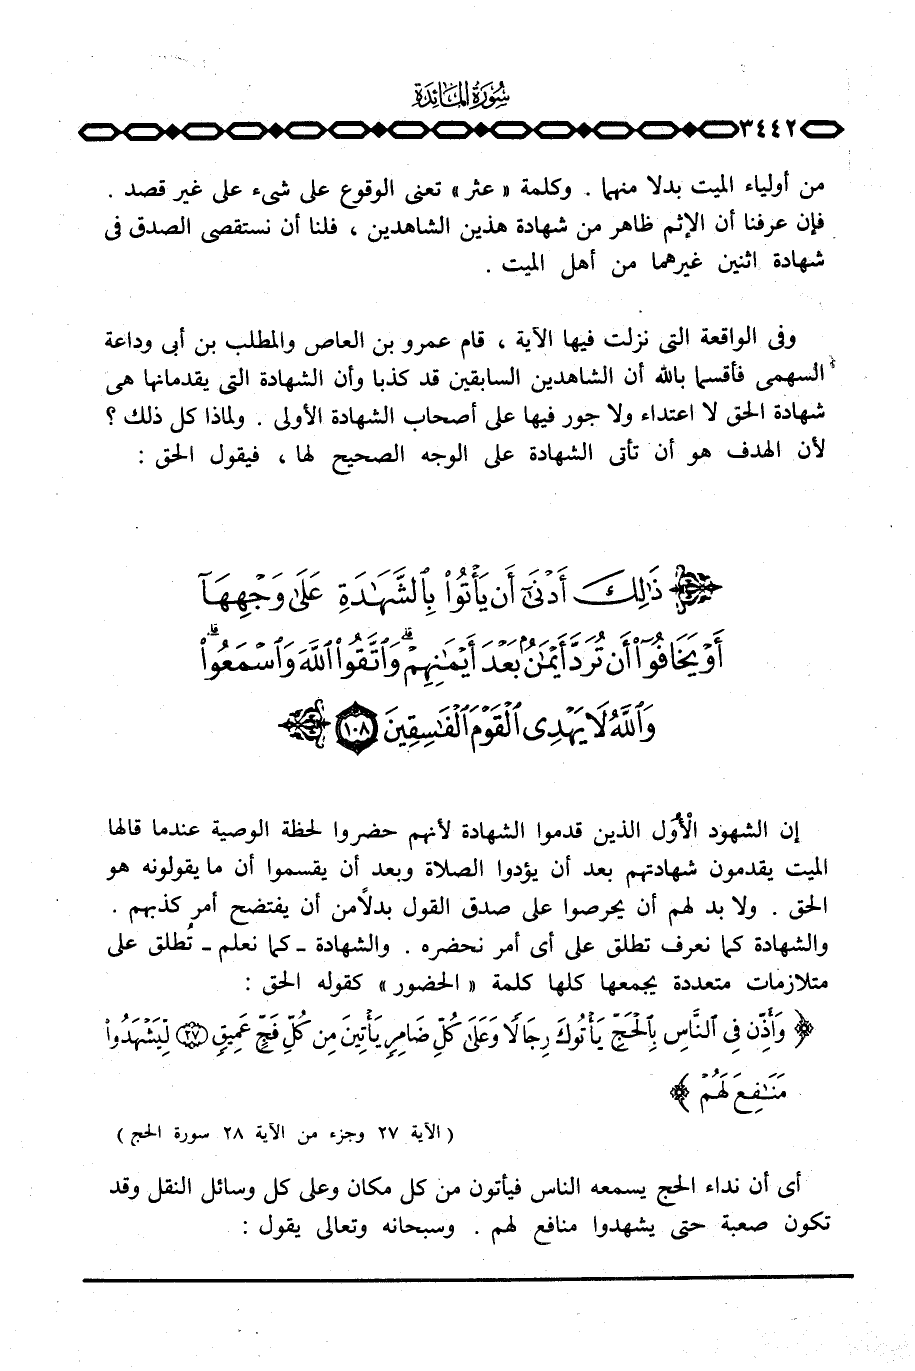 سورة المائدة
٣٤٤٢
من أولياء الميت بدلا منهما . وكلمة « عثر » تعنى الوقوع على شىء على غير قصد .
فإن عرفنا أن الإثم ظاهر من شهادة هذين الشاهدين ، فلنا أن نستقصى الصدق فى
شهادة اثنين غيرهما من أهل الميت .
وفى الواقعة التى نزلت فيها الآية ، قام عمرو بن العاص والمطلب بن أبى وداعة
السهمى فأقسما بالله أن الشاهدين السابقين قد كذبا وأن الشهادة التى يقدمانها هى
شهادة الحق لا اعتداء ولا جور فيها على أصحاب الشهادة الأولى . ولماذا كل ذلك ؟
لأن الهدف هو أن تأتى الشهادة على الوجه الصحيح لها ، فيقول الحق :
ذَٰلِكَ أَدْنَىٰٓ أَن يَأْتُوا۟ بِٱلشَّهَٰدَةِ عَلَىٰ وَجْهِهَآ
أَوْ يَخَافُوٓا۟ أَن تُرَدَّ أَيْمَٰنٌۢ بَعْدَ أَيْمَٰنِهِمْ ۗ وَٱتَّقُوا۟ ٱللَّهَ وَٱسْمَعُوا۟ ۗ
وَٱللَّهُ لَا يَهْدِى ٱلْقَوْمَ ٱلْفَٰسِقِينَ ١٠٨
إن الشهود الْأُوَل الذين قدموا الشهادة لأنهم حضروا لحظة الوصية عندما قالها
الميت يقدمون شهادتهم بعد أن يؤدوا الصلاة وبعد أن يقسموا أن ما يقولونه هو
الحق . ولا بد لهم أن يحرصوا على صدق القول بدلاً من أن يفتضح أمر كذبهم .
والشهادة كما نعرف تطلق على أى أمر نحضره . والشهادة ـ كما نعلم ـ تُطلق على
متلازمات متعددة يجمعها كلها كلمة « الحضور » كقوله الحق :
﴿ وَأَذِّن فِى ٱلنَّاسِ بِٱلْحَجِّ يَأْتُوكَ رِجَالًا وَعَلَىٰ كُلِّ ضَامِرٍ يَأْتِينَ مِن كُلِّ فَجٍّ عَمِيقٍ ٢٧ لِّيَشْهَدُوا۟
مَنَٰفِعَ لَهُمْ ﴾
( الآية ٢٧ وجزء من الآية ٢٨ سورة الحج )
أى أن نداء الحج يسمعه الناس فيأتون من كل مكان وعلى كل وسائل النقل وقد
تكون صعبة حتى يشهدوا منافع لهم . وسبحانه وتعالى يقول :